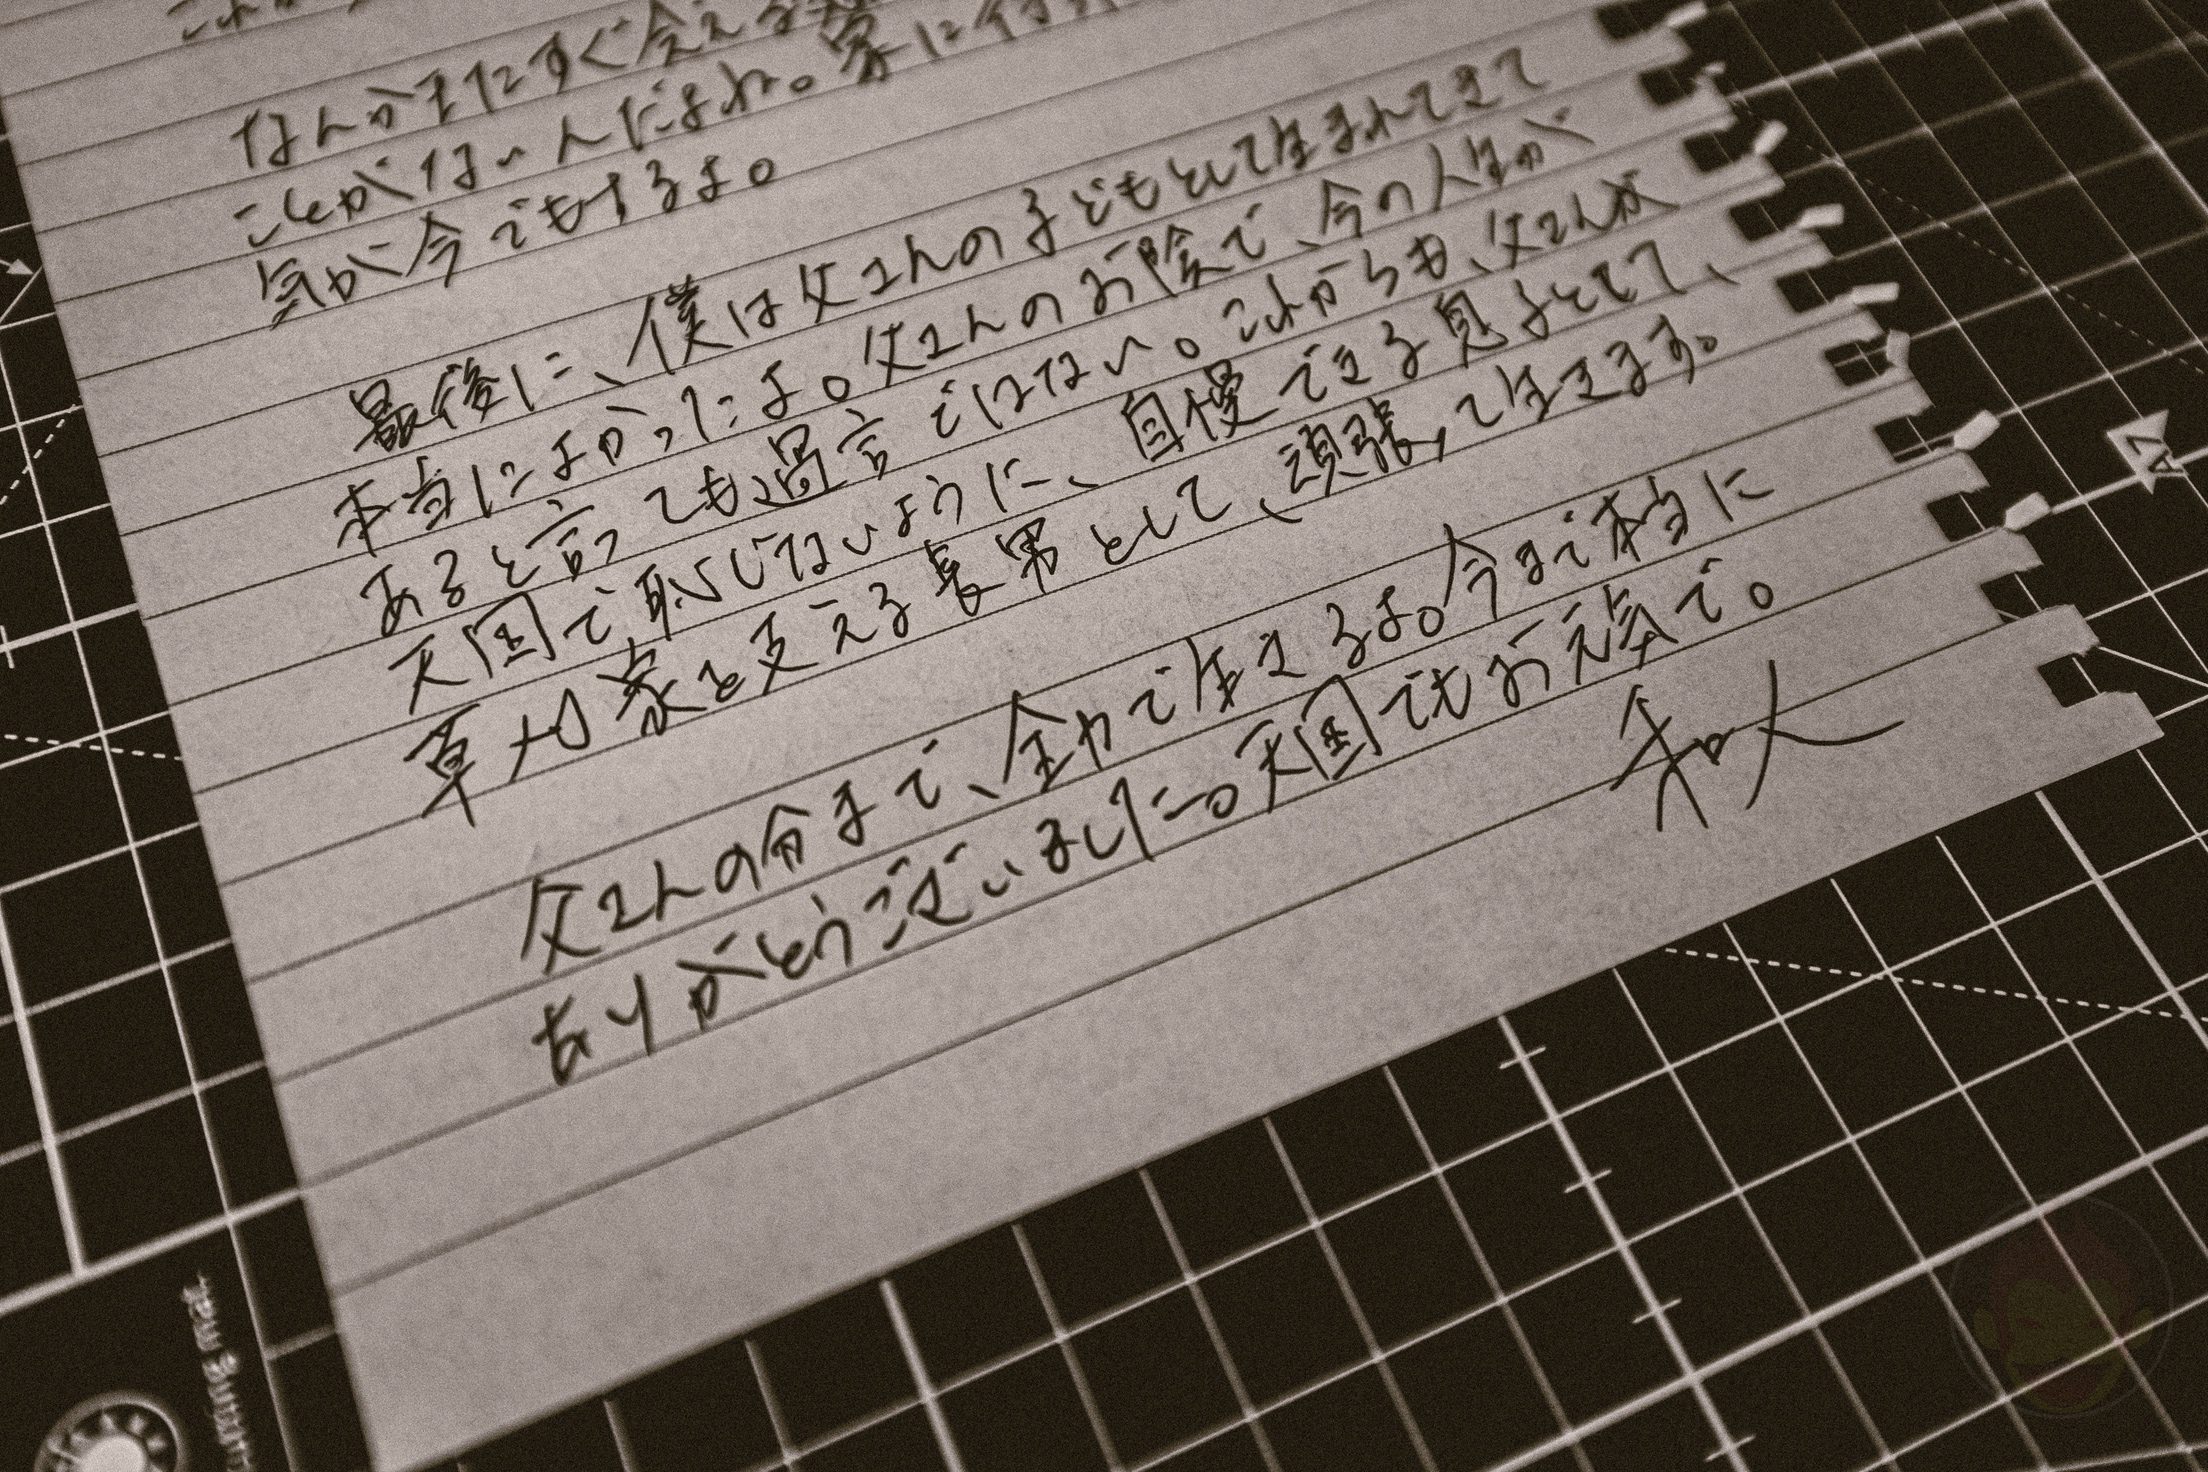 これか
なんかまたすぐ会える
ことがないんだよね。家に行
気が今でもするよ。
最後に、僕は父さんの子どもとして生まれてきて
本当によかったよ。父さんのお陰で、今の人生が
あると言っても過言ではない。これからも、父さんが
天国で恥じないように、自慢できる息子として、
家を支える長男として、頑張って生きます。
父さんの分まで、全力で生きるよ。今まで本当に
ありがとうございました。天国でもお元気で。
和人
A2
cutting mat